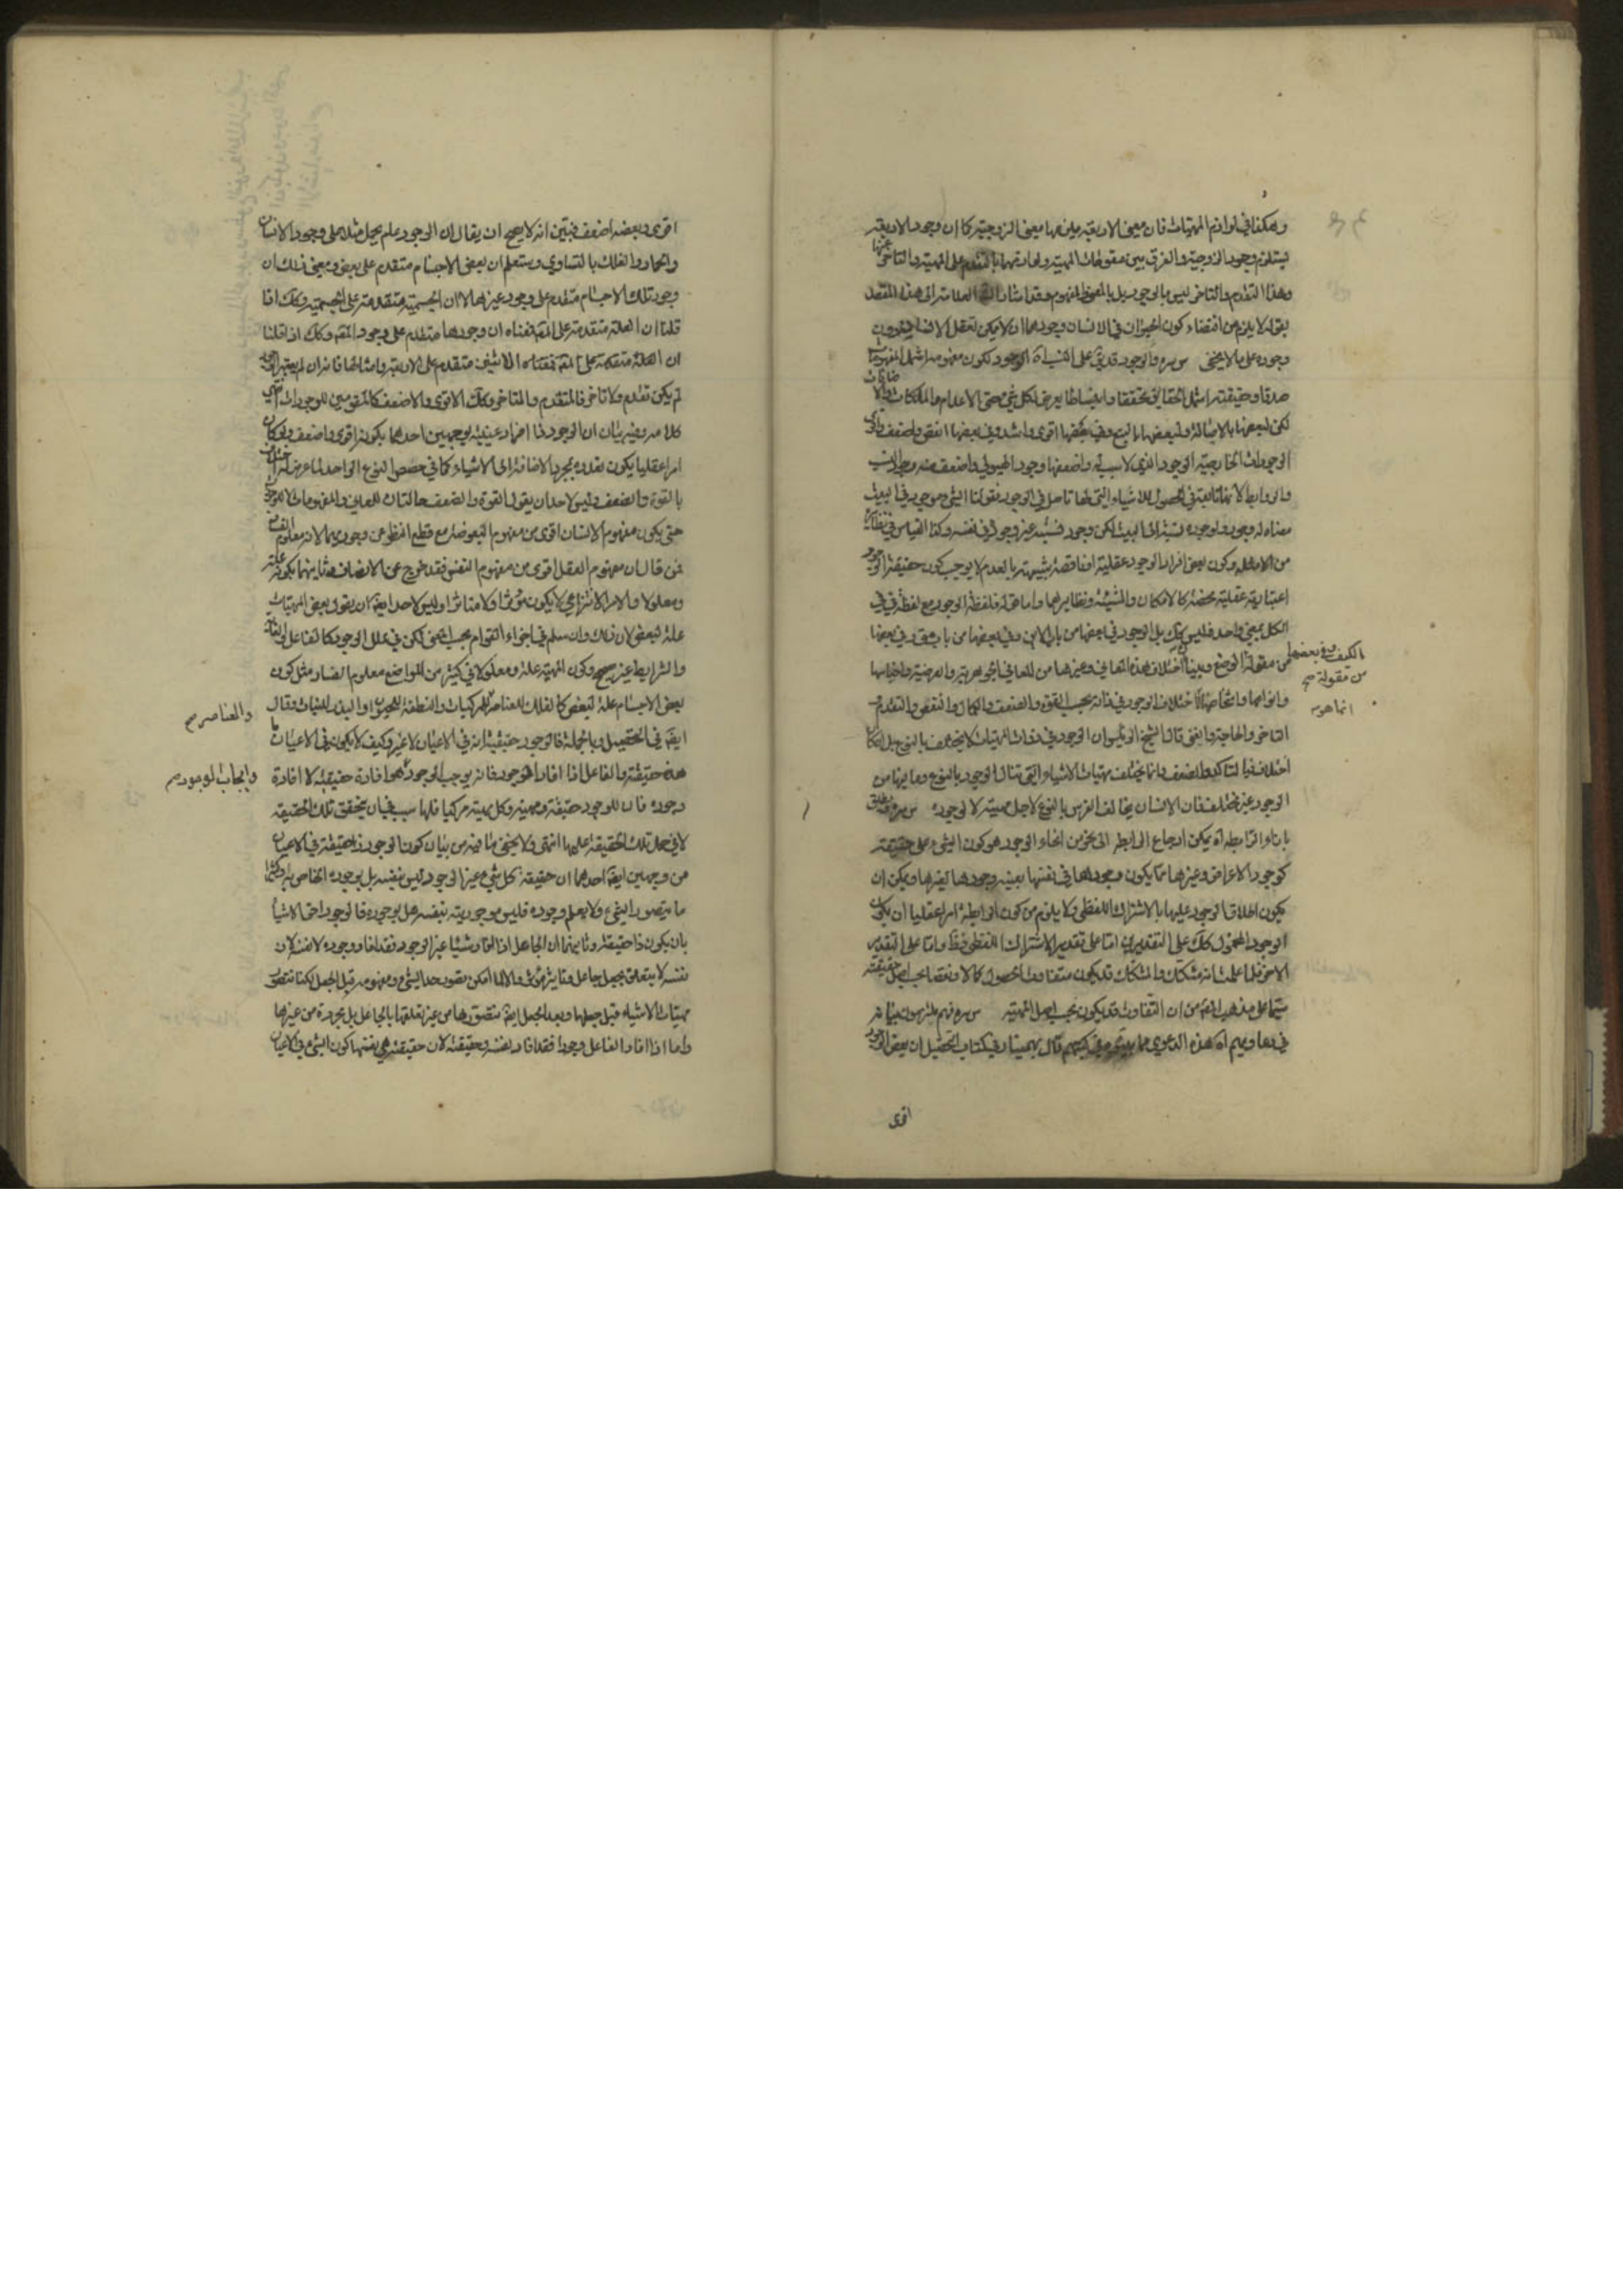 وهكذا في لوازم المهيات فان معنى الاربعة يلزمها معنى الزوجية كما ان وجود الاربعة
يستلزم وجود الزوجية والفرق بين مقومات المهية ولوازمها بالتقدم على المهية والتاخر عنها
وهذا التقدم والتاخر ليس بالوجود بل بالمعنى والمفهوم وقد اشار العلامة الى هذا المقصد
بقوله لا يلزم من اقتضاء كون الحيوان في الانسان وجودهما ان لا يمكن تعقل الانسان بدون
وجوده على ما لا يخفى س ره والوجود قد يق على الوجود لكون مفهومه اشمل المفهومات
صدقا وحقيقته اشمل الحقائق تحققا وانبساطا يعرض لكل شئ حتى الاعدام والملكات
لكن لبعضها بالاصالة ولبعضها بالتبع وفي بعضها اقوى واشد وفي بعضها انقص واضعف واقوى
الوجودات الخارجية الوجود الذي لا سبب له واضعفها وجود الهيولى واضعف منه وجود النسب
والروابط لانها تابعة في الحصول للاشياء التي لها تاصل في الوجود فقولنا الشئ موجود في البيت
معناه له وجود ولوجوده نسبة الى البيت لكن وجود نسبته غير وجوده في نفسه وكذا القياس في نظائره
من الامثلة وكون بعض افراد الوجود عقلية او ناقصة شبيهة بالعدم لا يوجب كون حقيقة الوجود
اعتبارية عقلية محضة كالامكان والشيئية ونظايرهما واما قوله فلفظة الوجود مع لفظة في في
الكل بمعنى واحد فليس كك بل الوجود في بعضها من باب الاين وفي بعضها من باب متى وفي بعضها
من مقولة الوضع وبينا اختلاف هذه المعاني وغيرها من المعاني الجوهرية والعرضية واجناسها
وانواعها واشخاصها اختلاف الوجود في ذاته بحسب القوة والضعف والكمال والنقص والتقدم
التاخر والحاجة والغنى قال الشيخ الرئيس ان الوجود في ذوات المهيات لا يختلف بالنوع بل ان كان
اختلاف فبالتاكد والضعف وانما يختلف مهيات الاشياء التي تنال الوجود بالنوع وما فيها من
الوجود غير مختلف فان الانسان يخالف الفرس بالنوع لاجل مهيته لا لوجوده س ره
بازاء الرابطة آه يمكن ارجاع الرابطة الى نحو من انحاء الوجود هو كون الشئ على حقيقته
كوجود الاعراض وغيرها مما يكون وجودها في نفسها بعينه وجودها لغيرها ويمكن ان
يكون اطلاق الوجود عليها بالاشتراك اللفظي ولا يلزم من كون الرابطة امرا عقليا ان يكون
الوجود المحمول كك على التقديرين اما على تقدير الاشتراك اللفظي فظ واما على التقدير
الاخر فلما علمت انه مشكك والمشكك قد يكون متفاوت الحصول كمالا ونقصا بحسب اصل حقيقته
سيما على مذهب القوم من ان التفاوت قد يكون بحسب اصل المهية س ره
آه هذه الدعوى مما في كتبهم قال بهمنيار في كتاب التحصيل ان بعض الوجود
الكيف وفي بعضها
من مقولة صح
انما هو
اقوى
اقوى وبعضه اضعف فتبين انه لا يصح ان يقال ان الوجود علم يحمل مثلا على وجود الانسان
والحمار والفلك بالتساوي وستعلم ان بعض الاجسام متقدم على بعض ومعنى ذلك ان
وجود تلك الاجسام متقدم على وجود غيرها لا ان الجسمية متقدمة على الجسمية وكك اذا
قلنا ان العلة متقدمة على المع فمعناه ان وجودها متقدم على وجود المع وكك اذا قلنا
لم يكن تقدم ولا تاخر فالمتقدم والمتاخر وكك الاقوى والاضعف كالمقومين للوجودات انتهى
كلامه وفيه بيان ان الوجود ذا افراد عينية بوجهين احدهما بكونه اقوى واضعف ولو كان
امرا عقليا يكون تعدده بمجرد الاضافة الى الاشياء كما في حصص النوع الواحد لما عرض له
بالقوة والضعف وليس لاحد ان يقول القوة والضعف حالتان للمعاني والمفهومات لا للوجود
حتى يكون مفهوم الانسان اقوى من مفهوم البعوضة مع قطع النظر عن وجوديهما لانه معلوم
فمن قال ان مفهوم العقل اقوى من مفهوم النفس فقد خرج عن الانصاف وثانيهما بكونه علة
ومعلولا والامر الانتزاعي لا يكون مؤثرا ولا متاثرا وليس لاحد ايضا ان يقول بعض المهيات
علة لبعض لان ذلك وان سلم في اجزاء القوام بحسب المعنى لكن في علل الوجود كالفاعل والغاية
والشرايط غير صحيح وكون المهية علة ومعلولا في كثير من المواضع معلوم الفساد مثل كون
بعض الاجسام علة لبعض كالفلك للعناصر للمركبات والنطفة للحيوان والبذر للنبات وقال
ايضا في التحصيل وبالجملة فالوجود حقيقته انه في الاعيان لا غير وكيف لا يكون في الاعيان ما
هذه حقيقته والفاعل اذا افاد الوجود فانه يوجب الوجود هو افادة حقيقته لا افادة
وجوده فان للوجود حقيقة ومهية وكل مهية مركبة فلها سبب في ان يتحقق تلك الحقيقة
لا في حمل تلك الحقيقة عليها انتهى ولا يخفى ما فيه من بيان كون الوجود ذا حقيقة في الاعيان
من وجهين ايضا احدهما ان حقيقة كل شئ غير الوجود ليس بنفسه بل بوجوده الخاص به وكثيرا
ما يتصور الشئ ولا يعلم وجوده فليس موجوديته بنفسه بل بوجوده فالوجود احق الاشياء
بان يكون ذا حقيقة وثانيهما ان الجاعل اذا افاد شيئا غير الوجود فقد افاد وجوده لا نفسه لان
نفسه لا يتعلق بجعل جاعل وتاثير مؤثر والا لما امكن تصور حد الشئ ومفهومه قبل الجعل لكنا نتصور
مهيات الاشياء قبل جعلها وبعد الجعل ايضا نتصورها من غير تعلقها بالجاعل بل مجردة من غيرها
واما اذا افاد الفاعل وجودا فقد افاد نفسه وحقيقته لان حقيقته هي بعينها كون الشئ في الاعيان
والعناصر
وايجاب الوجود